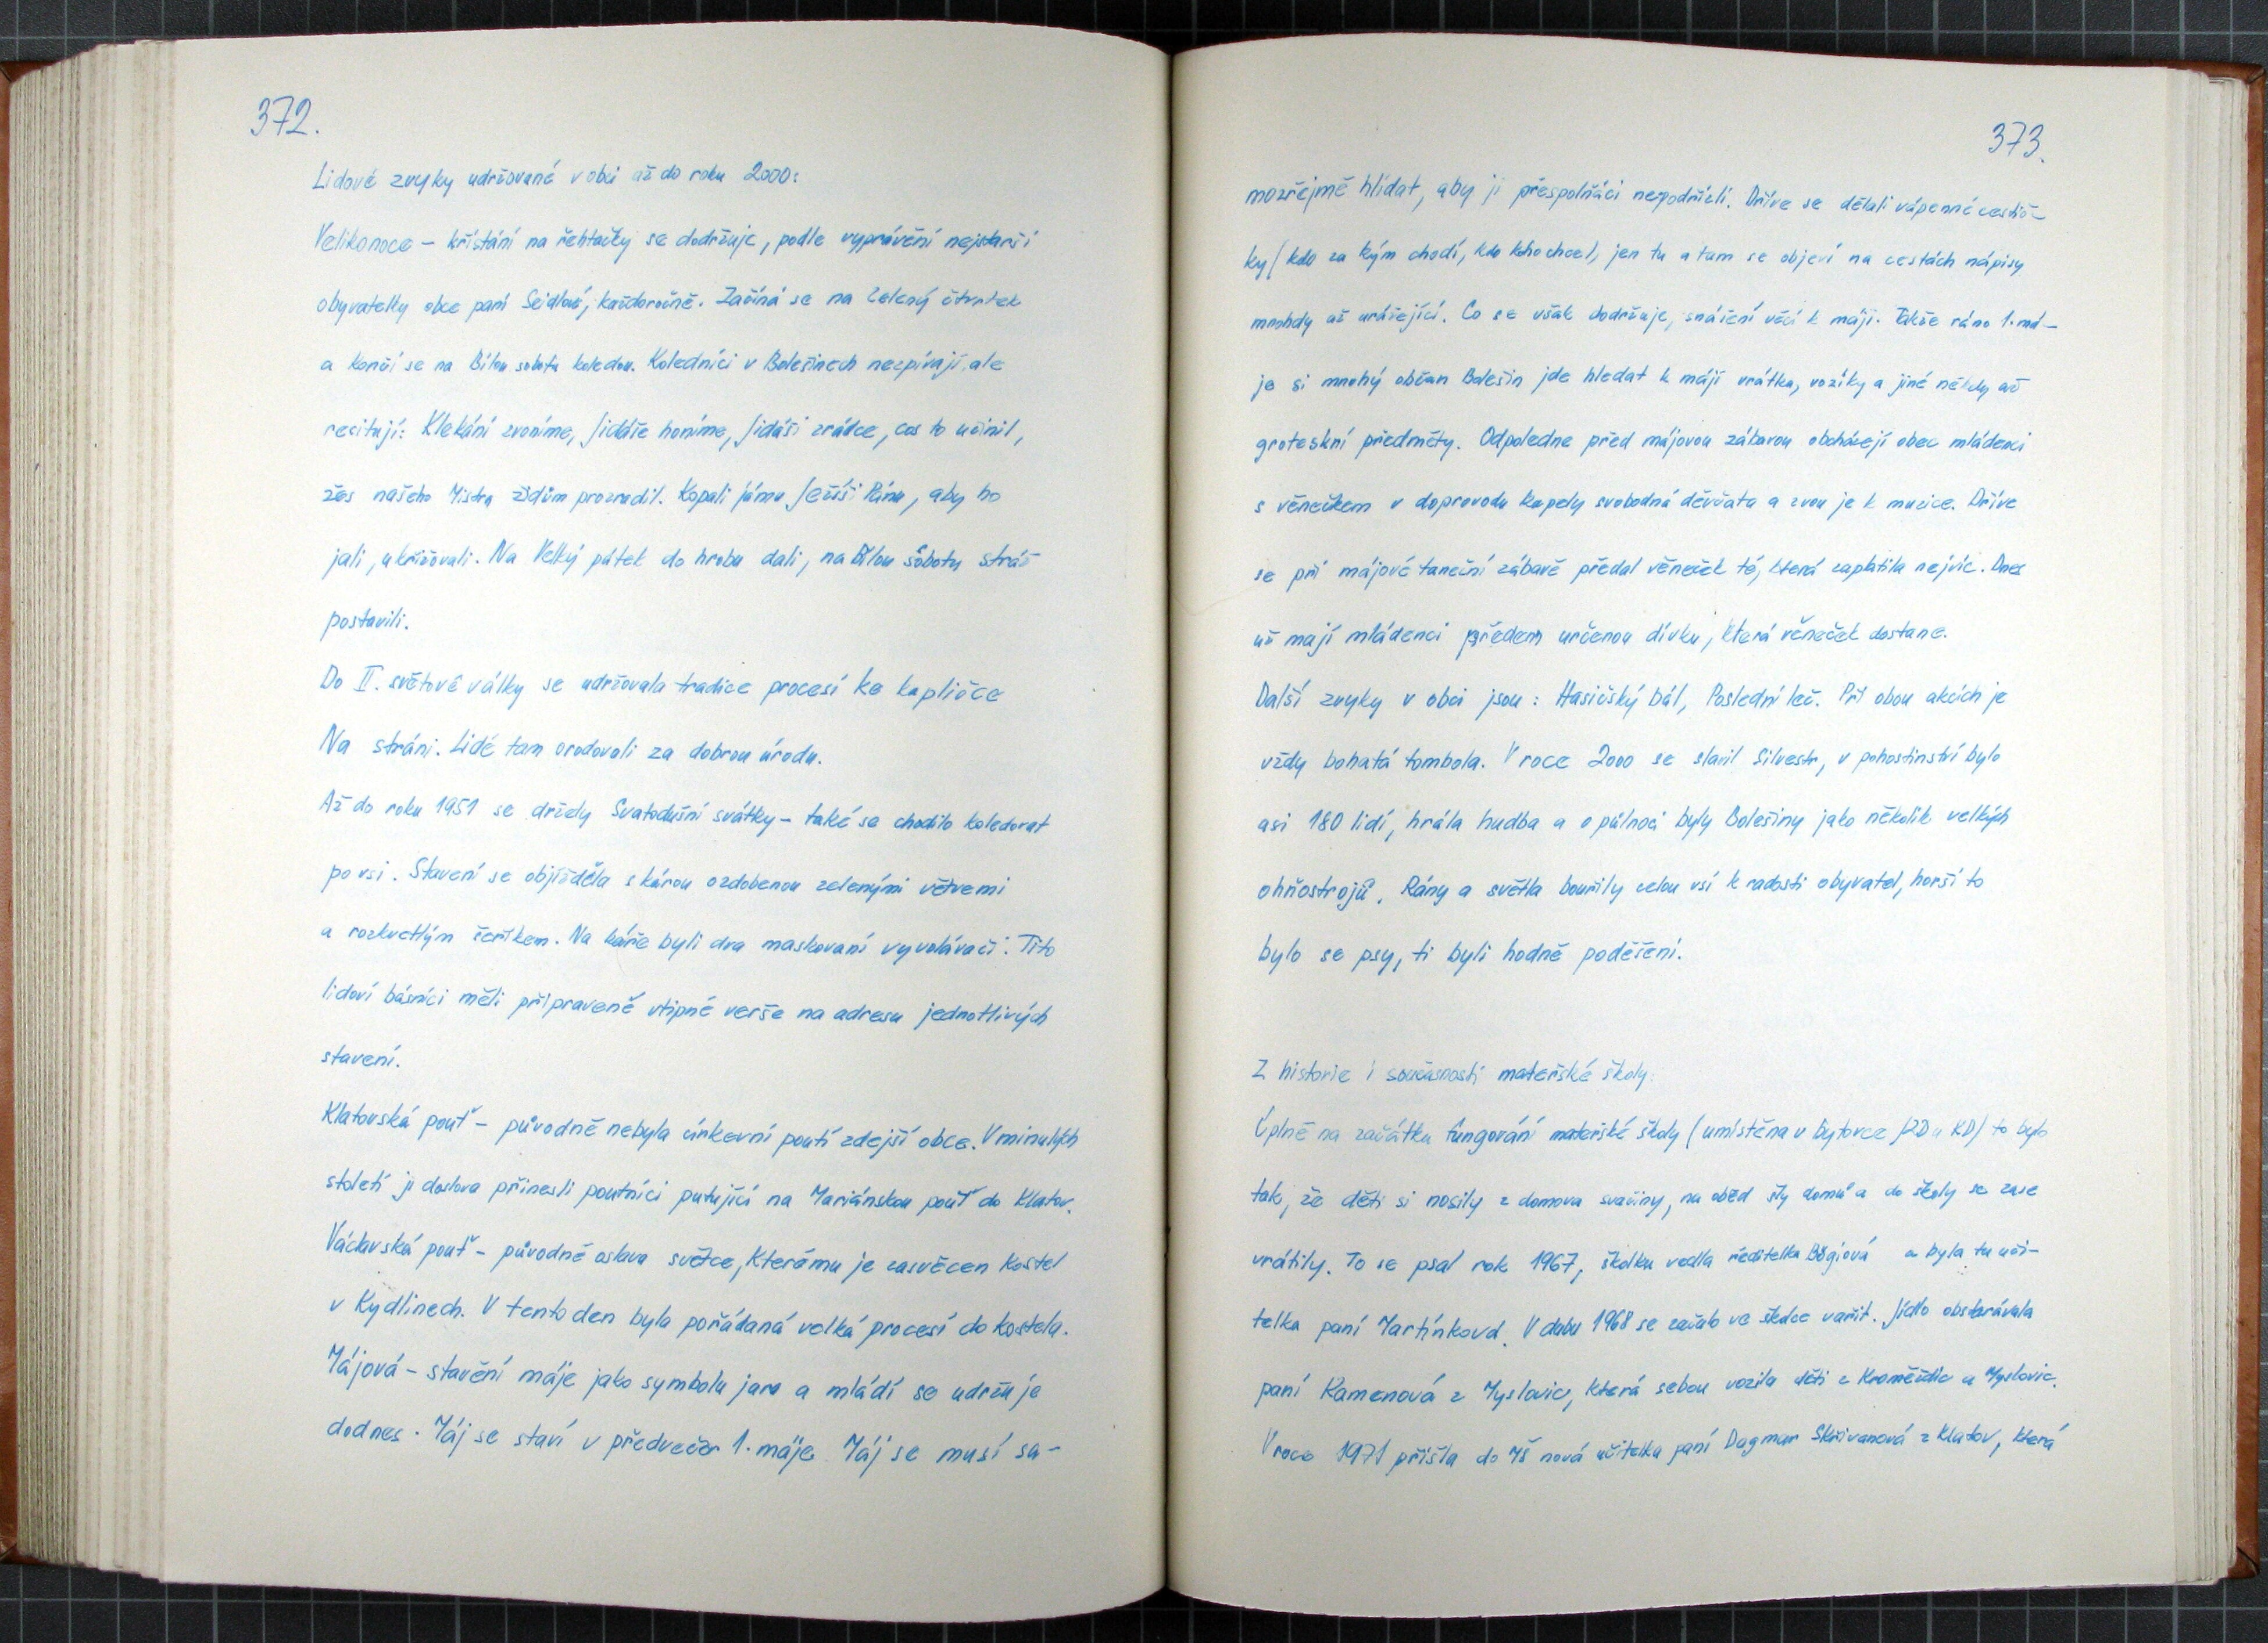 372.
Lidové zvyky udržované v obci až do roku 2000:
Velikonoce - křístání na řehtačky se dodržuje, podle vyprávění nejstarší
obyvatelky obce paní Seidlové, každoročně. Začíná se na Zelený čtvrtek
a končí se na Bílou sobotu koledou. Koledníci v Bolešinech nezpívají, ale
recitují: Klekání zvoníme, Jidáše honíme, Jidáši zrádce, cos to učinil,
žes našeho Mistra židům prozradil. Kopali jámu Ježíši Pánu, aby ho
jali, ukřižovali. Na Velký pátek do hrobu dali, na Bílou sobotu stráž
postavili.
Do II. světové války se udržovala tradice procesí ke kapličce
Na stráni. Lidé tam orodovali za dobrou úrodu.
Až do roku 1951 se držely Svatodušní svátky - také se chodilo koledovat
po vsi. Stavení se objížděla s károu ozdobenou zelenými větvemi
a rozkvetlým šeříkem. Na káře byli dva maskovaní vyvolávači. Tito
lidoví básníci měli připravené vtipné verše na adresu jednotlivých
stavení.
Klatovská pouť - původně nebyla církevní poutí zdejší obce. V minulých
století ji doslova přinesli poutníci putující na Mariánskou pouť do Klatov.
Václavská pouť - původně oslava světce, kterému je zasvěcen kostel
v Kydlinech. V tento den byla pořádaná velká procesí do kostela.
Májová - stavění máje jako symbolu jara a mládí se udržuje
dodnes. Máj se staví v předvečer 1. máje. Máj se musí sa-
373.
mozřejmě hlídat, aby ji přespolňáci nepodřízli. Dříve se dělali vápenné cestič-
ky (kdo za kým chodí, kdo koho chce), jen tu a tam se objeví na cestách nápisy
mnohdy až urážející. Co se však dodržuje, snášení věcí k máji. Takže ráno 1. má-
je si mnohý občan Bolešin jde hledat k máji vrátka, vozíky a jiné někdy až
groteskní předměty. Odpoledne před májovou zábavou obcházejí obec mládenci
s věnečkem v doprovodu kapely svobodná děvčata a zvou je k muzice. Dříve
se při májové taneční zábavě předal věneček té, která zaplatila nejvíc. Dnes
už mají mládenci předem určenou dívku, která věneček dostane.
Další zvyky v obci jsou: Hasičský bál, Poslední leč. Při obou akcích je
vždy bohatá tombola. V roce 2000 se slavil Silvestr, v pohostinství bylo
asi 180 lidí, hrála hudba a o půlnoci byly Bolešiny jako několik velkých
ohňostrojů. Rány a světla bouřily celou vsí k radosti obyvatel, horší to
bylo se psy, ti byli hodně poděšení.
Z historie i současnosti mateřské školy:
Úplně na začátku fungování mateřské školy (umístěna v bytovce JZD u KD) to bylo
tak, že děti si nosily z domova svačiny, na oběd šly domů a do školy se zase
vrátily. To se psal rok 1967, školku vedla ředitelka Bőgiová a byla tu uči-
telka paní Martínková. V dubu 1968 se začalo ve školce vařit. Jídlo obstarávala
paní Kamenová z Myslovic, která sebou vozila děti z Kroměždic a Myslovic.
V roce 1971 přišla do MŠ nová učitelka paní Dagmar Skřivanová z Klatov, která